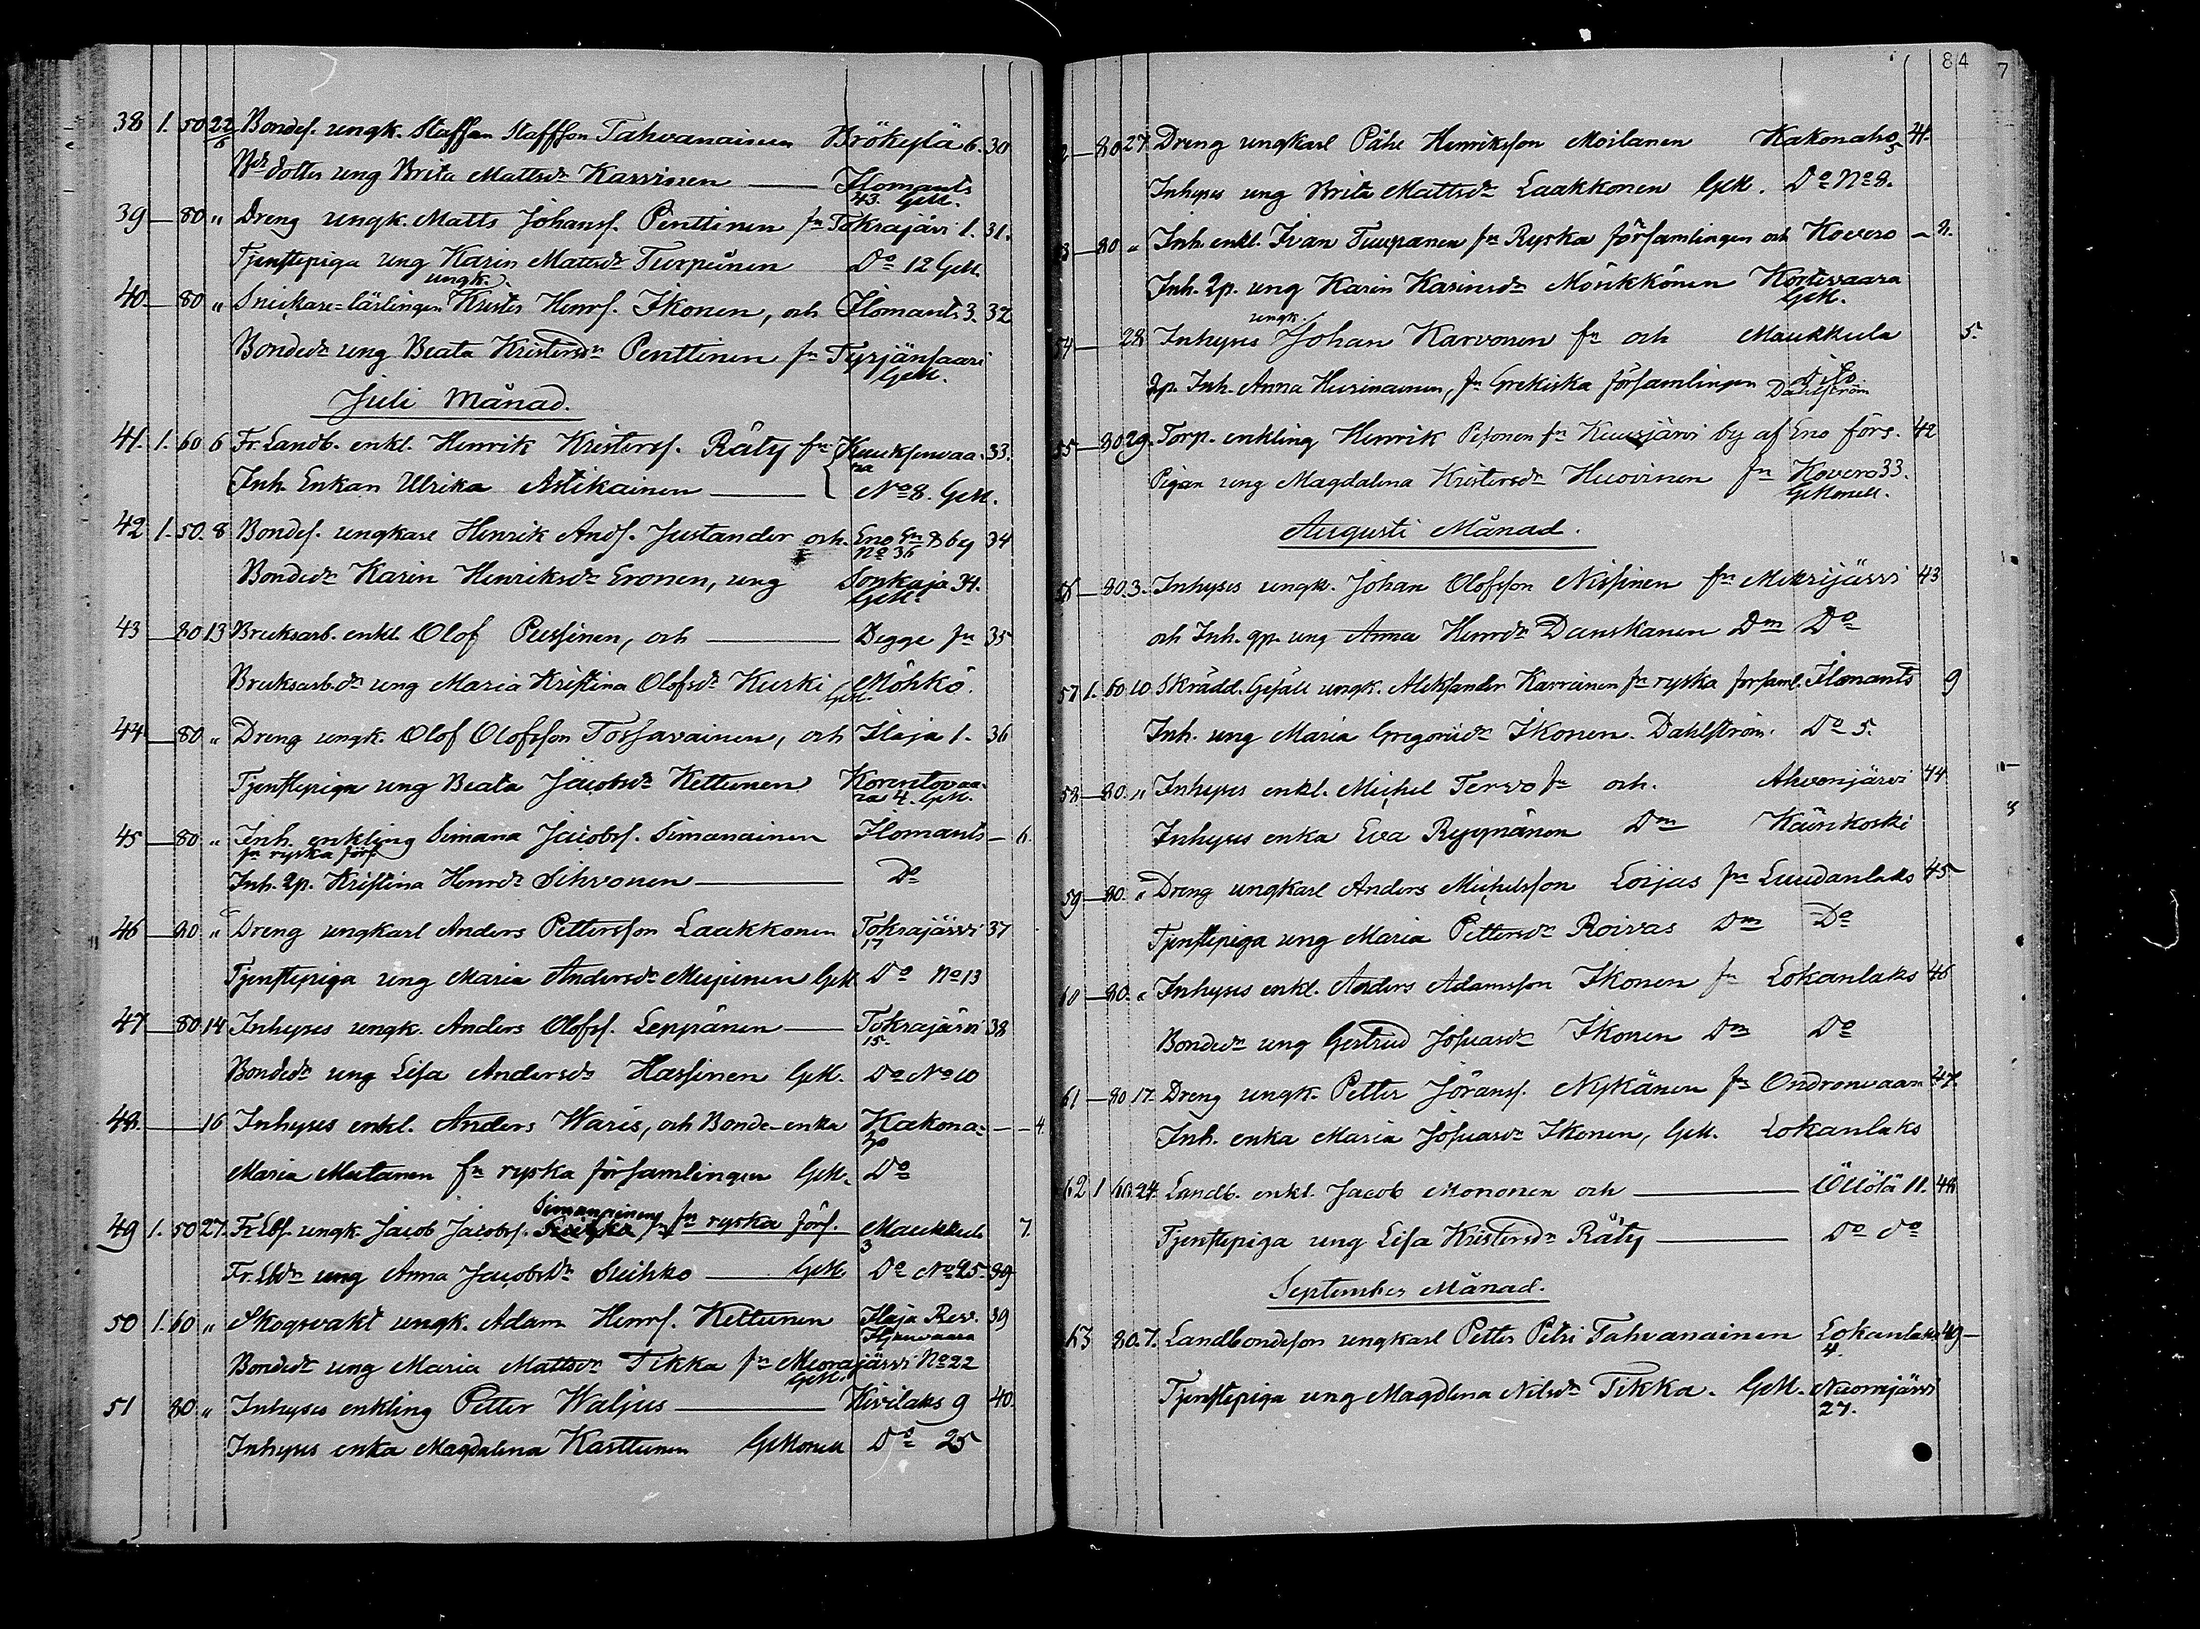 38 1. 50 22/6 Bondes. ungk. Staffan Staffsson Tahvanainen Brökylä 6. 30
Bde dotter ung Brita Mattsdr Karvinen — Ilomants 43. GeM.
39 — 80 „ Dreng ungk. Matts Johansf. Penttinen fn Tokrajärvi 1. 31.
Tjenstepiga ung Karin Mattsdr Turpeinen Do 12 GeM.
40 — 80 „ Snickare-lärlingen ungk. Krister Henrs. Ikonen, och Ilomants 3. 32
Bondedr ung Beata Kristersdr Penttinen fn Tyrjänsaari GeM.
Juli Månad.
41. 1. 60 6 Fr. Landb. enkl. Henrik Kristerss. Räty fn Kuuksenvaara 33.
Inh. Enkan Ulrika Astikainen — No 8. GeM.
42 1. 50. 8 Bondes. ungkarl Henrik Ands. Justander och Eno No 36 by 34
Bondedr Karin Henriksdr Eronen, ung Sonkaja 34. GeM.
43 — 80 13 Bruksarb. enkl. Olof Pussinen, och — Degge fn 35
Bruksarb.dr ung Maria Kristina Olofsdr Kurki GeM. Möhkö.
44 — 80 „ Dreng ungk. Olof Olofsson Tossavainen, och Ilaja 1. 36
Tjenstepiga ung Beata Jacobsdr Kettunen Korentovaara 4. GeM.
45 — 80 „ Inh. enkling Simana Jacobss. Simanainen Ilomants — 6.
fn ryska förs.
Inh. 2p. Kristina Henrsdr Sihvonen — Do
46 — 80 „ Dreng ungkarl Anders Pettersson Laakkonen Tokrajärvi 17 37
Tjenstepiga ung Maria Andersdr Mujunen GeM Do No 13
47 — 80 14 Inhyses ungk. Anders Olofss. Leppänen — Tokrajärvi 15. 38
Bondedr ung Lisa Andersdr Hassinen GeM. Do No 10
48. — 16 Inhyses enkl. Anders Waris, och Bonde-enka Kakona- ho — — 4.
Maria Mutanen fn ryska församlingen GeM. Do
49 1. 50 27. Fr. Lbs. ungk. Jacob Jacobss. Simanainen fn ryska förs. Maukkula 3 7.
Fr. Lbdr ung Anna Jacobsdr Suhko — GeM Do No 25 39
50 1. 60 „ Skogsvakt ungk. Adam Henrs. Kettunen Ilaja Rev. 39
Bondedr ung Maria Mattsdr Tikka fn Nuorajärvi No 22 GeM.
51 80 „ Inhyses enkling Petter Waljus — Kivilaks 9 40.
Inhyses enka Magdalena Karttunen GeMonell Do 25
84 7
2 — 80 27 Dreng ungkarl Påhl Henriksson Moilanen Kakonaho 5 41.
Inhyses ung Brita Mattsdr Laakkonen GeM. Do No 8.
3 — 80 „ Inh. enkl. Ivan Tuupanen fn Ryska församlingen och Kovero — 8.
Inh. 2p. ung Karin Karinsdr Mönkkönen Kortevaara GeM.
54 — 28 Inhyses ungk. Johan Karvonen fn och Maukkula 5.
2p. Inh. Anna Hurinainen, fn Grekiska församlingen Dito Dahlström
55 — 80 29. Torp. enkling Henrik Pesonen fn Kuusjärvi by af Eno förs. 42
Pigan ung Magdalena Kristersdr Huovinen fn Kovero 33. GeMonell.
Augusti Månad.
56 — 80. 3. Inhyses ungk. Johan Olofsson Nissinen fn Mekrijärvi 43
och Inh. 2p. ung Anna Henrsdr Danskanen Dm Do
57 1. 60 10 Skrädd. Gesäll ungk. Aleksander Karvinen fn ryska forsaml. Ilomants 9
Inh. ung Maria Gregorisdr Ikonen. Dahlström. Do 5.
58 — 80. „ Inhyses enkl. Michel Tervo fn och. Ahvenjärvi 44
Inhyses enka Eva Ryynänen Dm Käinkoski
59 — 80. „ Dreng ungkarl Anders Michelsson Loijas fn Luudanlaks 45
Tjenstepiga ung Maria Pettersdr Roivas Dm Do
60 — 80. „ Inhyses enkl. Anders Adamsson Ikonen fn Lokanlaks 46
Bondedr ung Gertrud Josuasdr Ikonen Dm Do
61 — 80 17. Dreng ungk. Petter Jöranss. Nykänen fn Ondronvaara 47.
Inh. enka Maria Josuasdr Ikonen, GeM. Lokanlaks
62 1 60. 24. Landb. enkl. Jacob Mononen och — Öllölä 11. 48
Tjenstepiga ung Lisa Kristersdr Räty — Do do
September Månad.
63 80. 7. Landbondeson ungkarl Petter Petri Tahvanainen Lokanlaks 4. 49 —
Tjenstepiga ung Magdlena Nilsdr Tikka. GeM. Nuorajärvi 27.